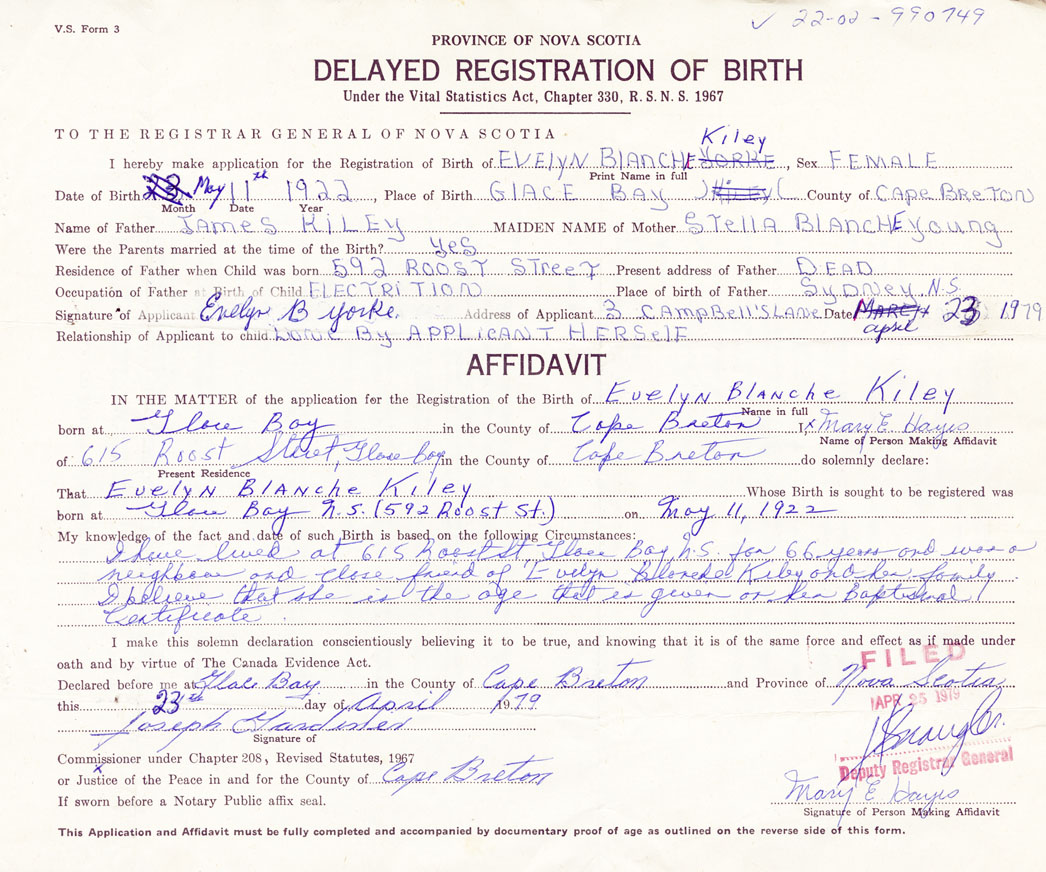 V.S. Form 3
✓ 22-02-990749
PROVINCE OF NOVA SCOTIA
DELAYED REGISTRATION OF BIRTH
Under the Vital Statistics Act, Chapter 330, R.S.N.S. 1967
TO THE REGISTRAR GENERAL OF NOVA SCOTIA
Kiley
I hereby make application for the Registration of Birth of EVELYN BLANCHE YORKE, Sex FEMALE
Print Name in full
Date of Birth May 11th 1922, Place of Birth GLACE BAY County of CAPE BRETON
Month Date Year
Name of Father JAMES KILEY MAIDEN NAME of Mother STELLA BLANCHE Young
Were the Parents married at the time of the Birth? YES
Residence of Father when Child was born 592 ROOST STREET Present address of Father DEAD
Occupation of Father at Birth of Child ELECTRITION Place of birth of Father SYDNEY N.S.
Signature of Applicant Evelyn B Yorke. Address of Applicant 3 CAMPBELL'S LANE Date MARCH 23 1979
april
Relationship of Applicant to child DONE BY APPLICANT HERSELF
AFFIDAVIT
IN THE MATTER of the application for the Registration of the Birth of Evelyn Blanche Kiley
Name in full
born at Glace Bay in the County of Cape Breton I, x Mary E. Hayes
Name of Person Making Affidavit
of 615 Roost Street, Glace Bay in the County of Cape Breton do solemnly declare:
Present Residence
That Evelyn Blanche Kiley Whose Birth is sought to be registered was
born at Glace Bay N.S. (592 Roost St.) on May 11, 1922
My knowledge of the fact and date of such Birth is based on the following Circumstances:
I have lived at 615 Roost St Glace Bay, N.S. for 66 years and was a
neighbour and close friend of Evelyn Blanche Kiley and her family
I believe that she is the age that is given on her Baptismal
Certificate.
I make this solemn declaration conscientiously believing it to be true, and knowing that it is of the same force and effect as if made under
oath and by virtue of The Canada Evidence Act.
FILED
Declared before me at Glace Bay in the County of Cape Breton and Province of Nova Scotia
APR 25 1979
this 23th day of April 1979
Joseph Gardiner
Signature of
Commissioner under Chapter 208, Revised Statutes, 1967
x
or Justice of the Peace in and for the County of Cape Breton
Deputy Registrar General
If sworn before a Notary Public affix seal.
Mary E Hayes
Signature of Person Making Affidavit
This Application and Affidavit must be fully completed and accompanied by documentary proof of age as outlined on the reverse side of this form.